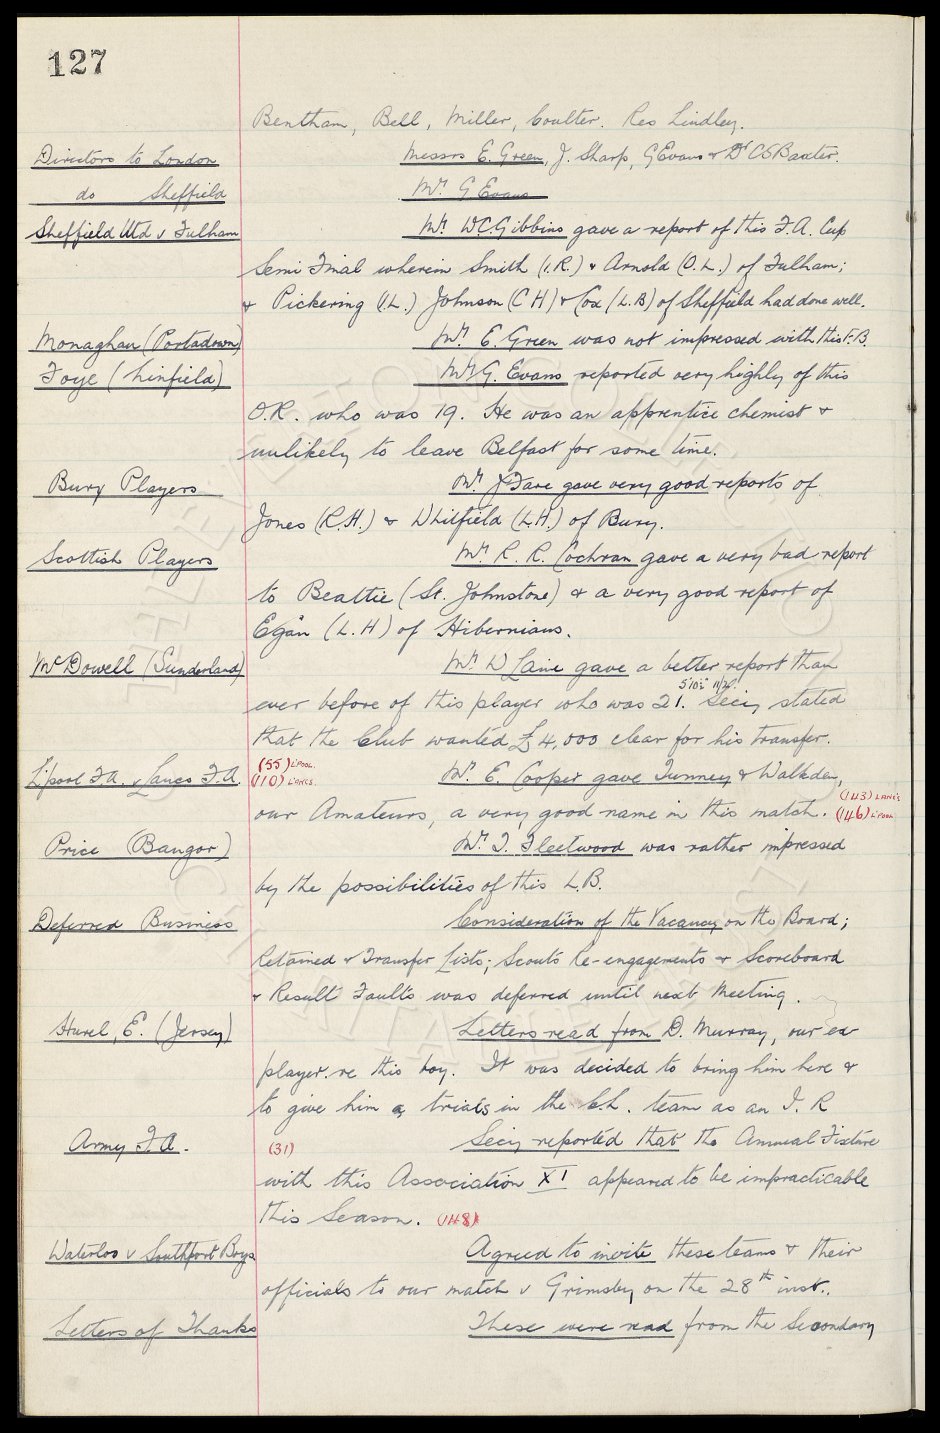 127
Bentham, Bell, Miller, Coulter. Res Lindley.
Directors to London Messrs E. Green, J. Sharp, G Evans & Dr C S Baxter.
do Sheffield Mr. G Evans
Sheffield Utd v Fulham Mr. W.C. Gibbins gave a report of this F.A. Cup
Semi Final wherein Smith (I.R.) & Arnold (O.L.) of Fulham;
& Pickering (I.L.) Johnson (C H) & Cox (L.B) of Sheffield had done well.
Monaghan (Portadown) Mr. E. Green was not impressed with this F.B.
Foye (Linfield) Mr G. Evans reported very highly of this
O.R. who was 19. He was an apprentice chemist &
unlikely to leave Belfast for some time.
Bury Players Mr. J Fare gave very good reports of
Jones (R.H.) & Whitfield (L.H.) of Bury.
Scottish Players Mr R. R. Cochran gave a very bad report
to Beattie (St. Johnstone) & a very good report of
Egan (L.H) of Hibernians.
McDowell (Sunderland) Mr. W Laine gave a better report than
5'10½" 11/20.
ever before of this player who was 21. Secy stated
that the Club wanted £4,000 clear for his transfer.
L'pool F.A. v Lancs F.A. (55) L'POOL. (110) LANCS. Mr. E. Cooper gave Tunney & Walkden,
our Amateurs, a very good name in this match. (143) LANCS (146) L'POOL
Price (Bangor) Mr. T. Fleetwood was rather impressed
by the possibilities of this L.B.
Deferred Business Consideration of the Vacancy on the Board;
Retained & Transfer Lists; Scouts Re-engagements & Scoreboard
& Result Faults was deferred until next Meeting.
Hurel, E. (Jersey) Letters read from D. Murray, our ex
player. re this boy. It was decided to bring him here &
to give him a trials in the C.L. team as an I. R
Army F.A. (31) Secy reported that the Annual Fixture
with this Association XI appeared to be impracticable
this Season. (148)
Waterloo v Southport Boys Agreed to invite these teams & their
officials to our match v Grimsby on the 28th inst..
Letters of Thanks These were read from the Secondary